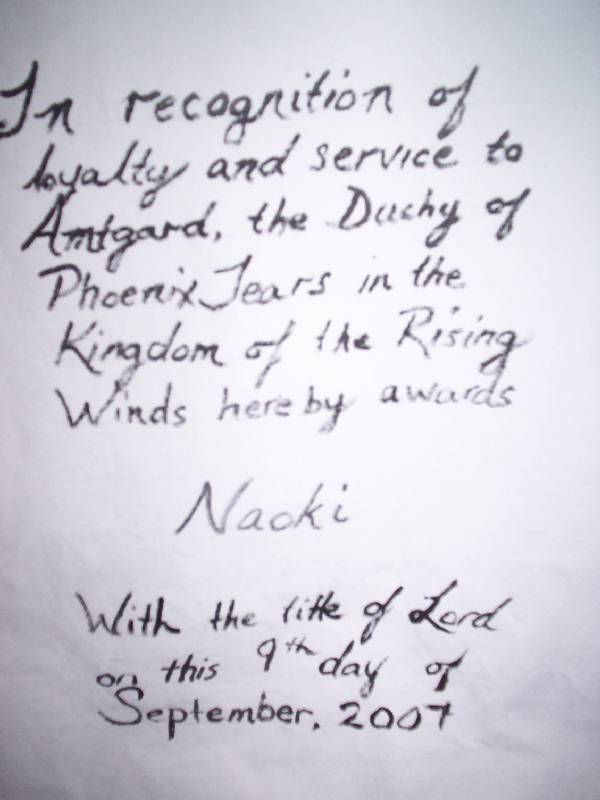 In recognition of
loyalty and service to
Amtgard, the Duchy of
Phoenix Tears in the
Kingdom of the Rising
Winds hereby awards
Naoki
With the title of Lord
on this 9th day of
September, 2007